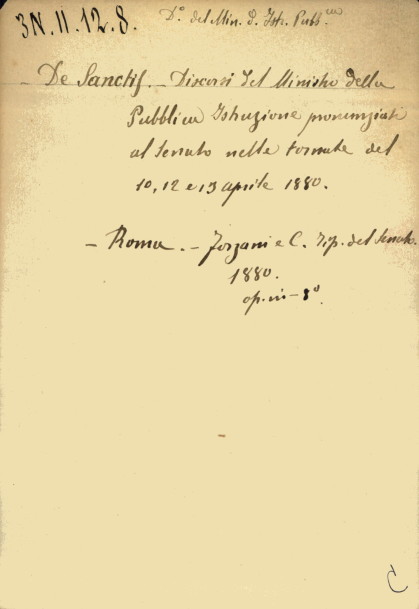 3N.11.12.8.
D.º del Min. d. Istr. Pubb.ca
— De Sanctis. — Discorsi del Ministro della
Pubblica Istruzione pronunziati
al Senato nelle tornate del
10, 12 e 13 aprile 1880.
— Roma. — Forzani e C. Tip. del Senato.
1880.
op. in - 8º
C